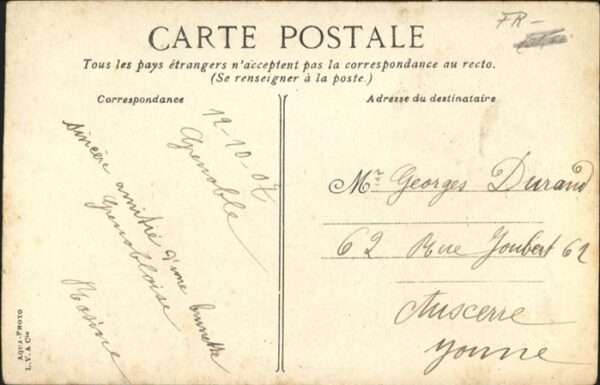 FR-
CARTE POSTALE
Tous les pays étrangers n'acceptent pas la correspondance au recto.
(Se renseigner à la poste.)
Correspondance
Adresse du destinataire
19-10-07
Grenoble
sincère amitié d'une brunette
Grenobloise
Mr. Georges Durand
62 Rue Joubert 62
Auxerre
Yonne
AQUA-PHOTO
L. V. & Cie